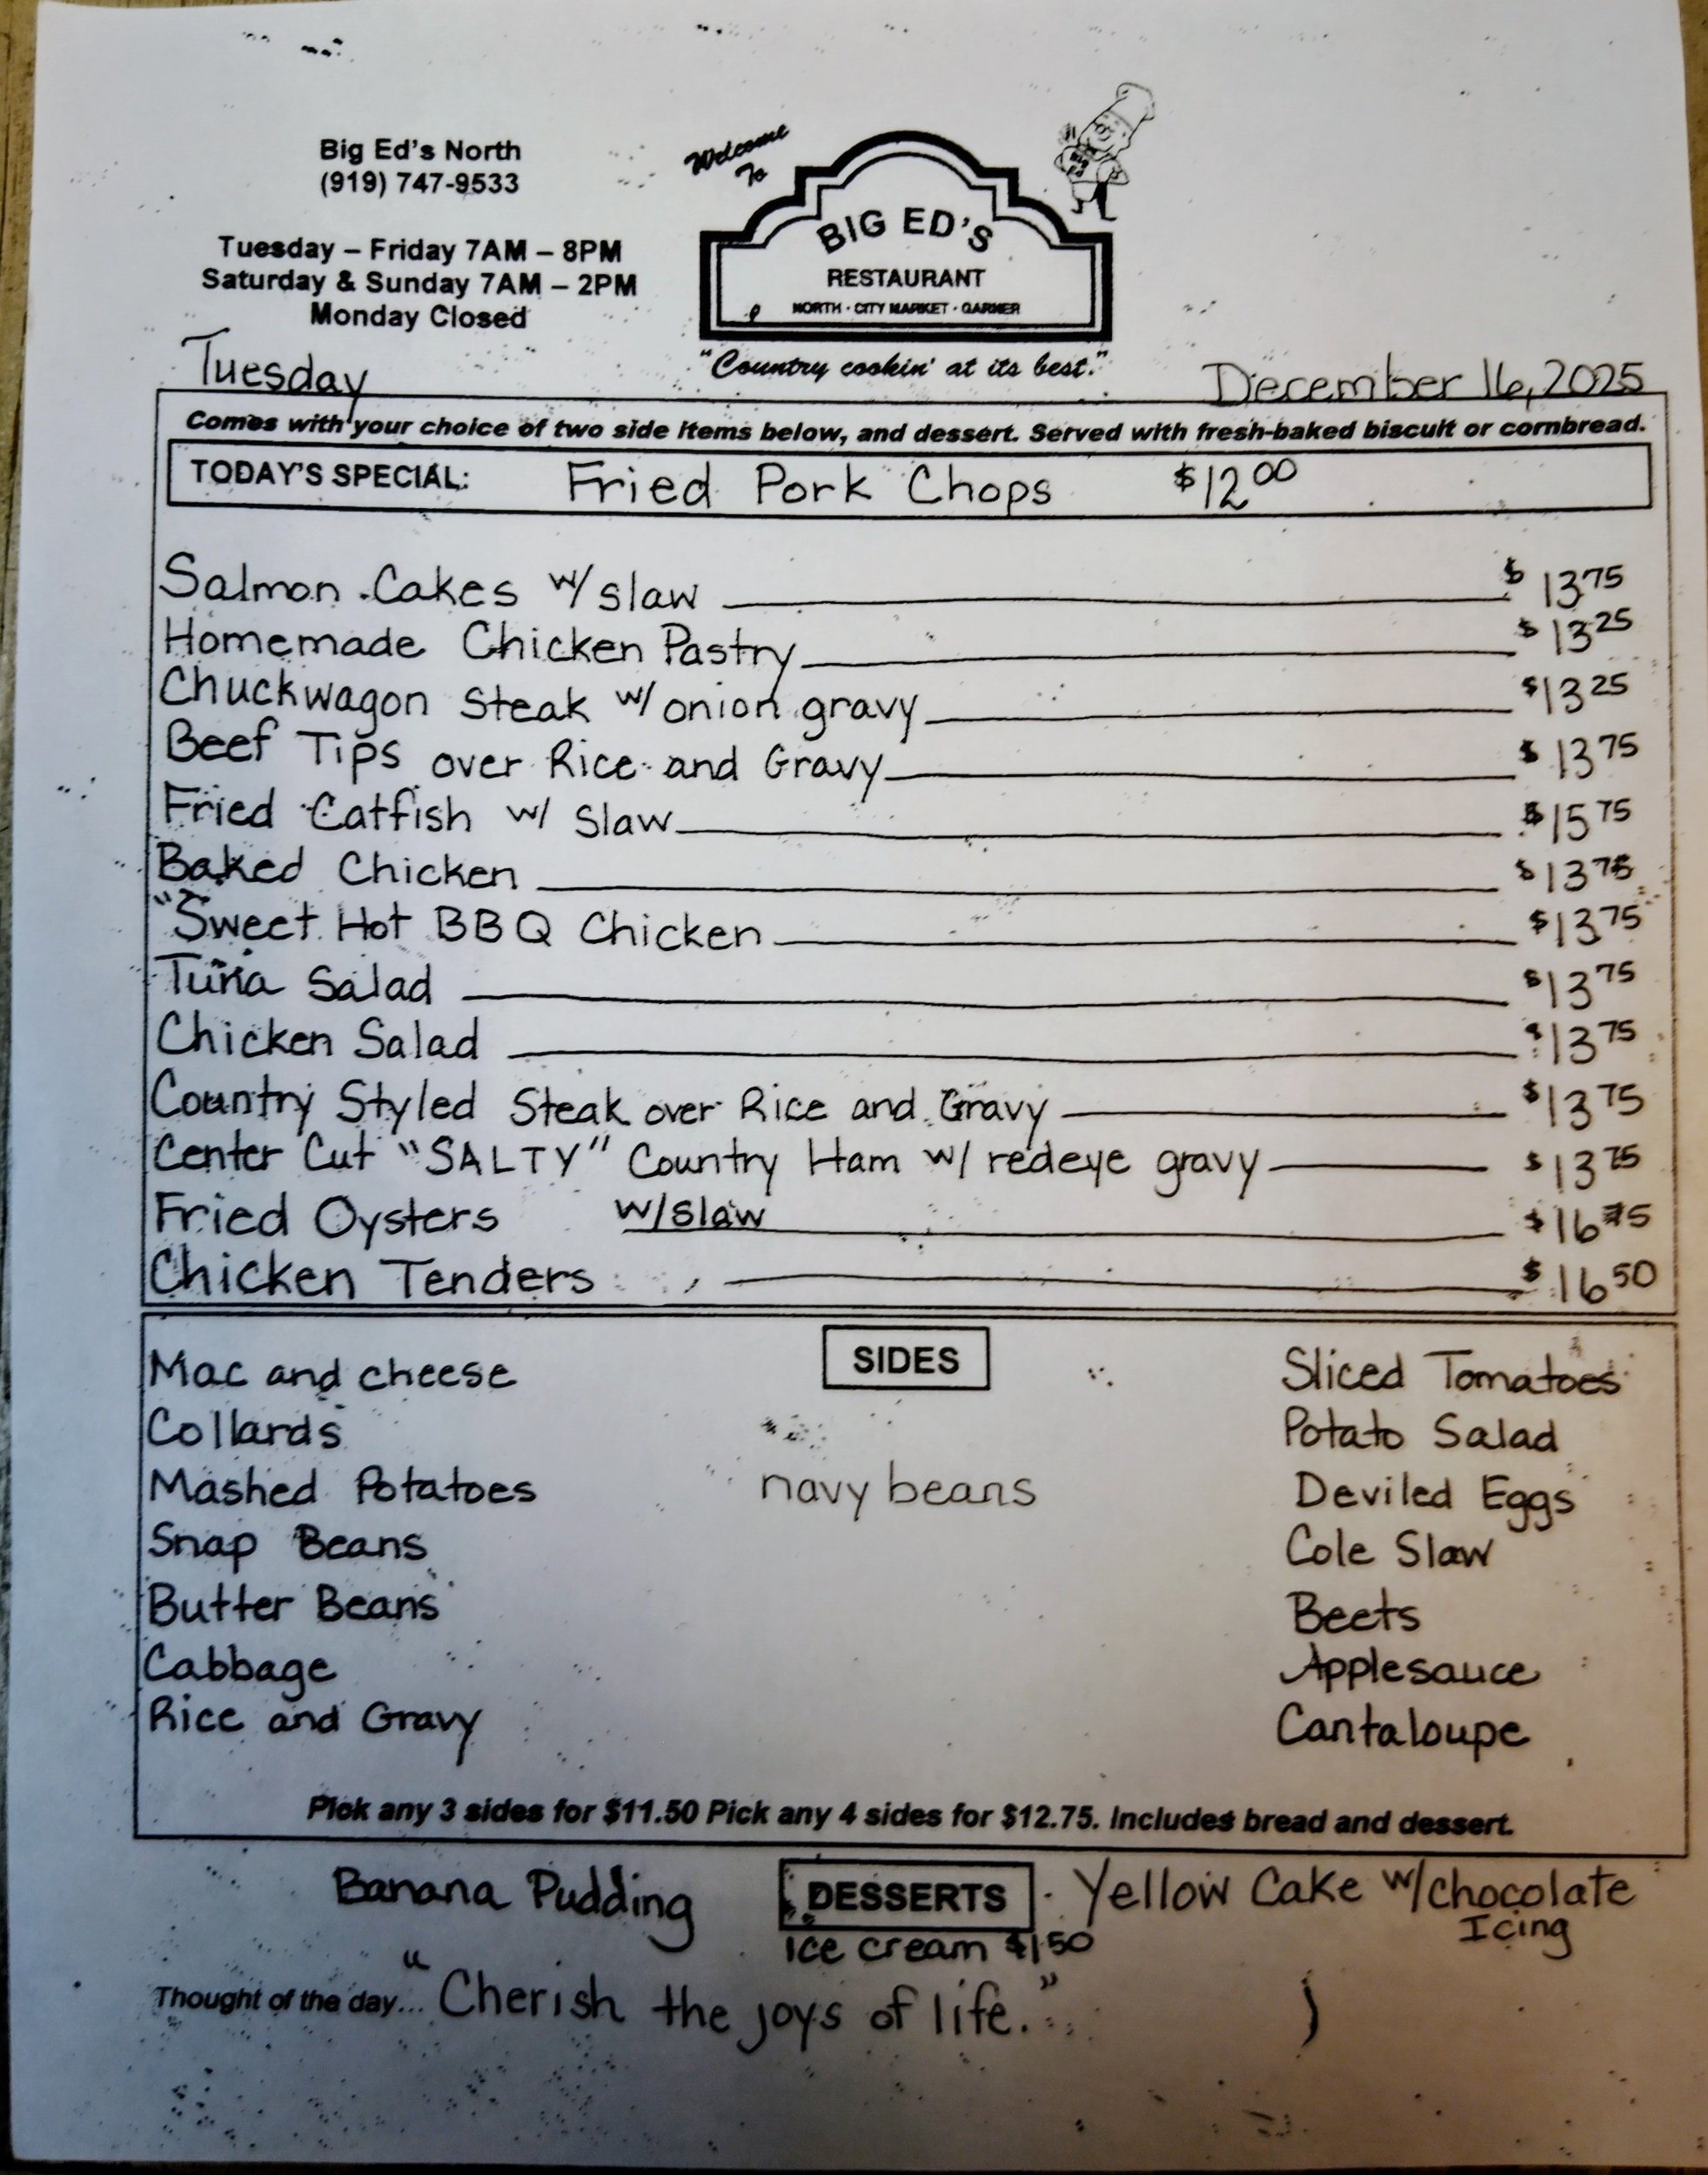 Big Ed's North
(919) 747-9533
Tuesday – Friday 7AM – 8PM
Saturday & Sunday 7AM – 2PM
Monday Closed
Welcome
To
BIG ED'S
RESTAURANT
NORTH · CITY MARKET · GARNER
"Country cookin' at its best."
Big
Ed
Tuesday
December 16, 2025
Comes with your choice of two side items below, and dessert. Served with fresh-baked biscuit or cornbread.
TODAY'S SPECIAL: Fried Pork Chops $12 00
Salmon Cakes w/ slaw $ 13 75
Homemade Chicken Pastry $ 13 25
Chuckwagon Steak w/ onion gravy $13 25
Beef Tips over Rice and Gravy $ 13 75
Fried Catfish w/ Slaw $15 75
Baked Chicken $13 75
"Sweet Hot BBQ Chicken $13 75
Tuna Salad $13 75
Chicken Salad $13 75
Country Styled Steak over Rice and Gravy $13 75
Center Cut "SALTY" Country Ham w/ redeye gravy $13 75
Fried Oysters w/slaw $16 75
Chicken Tenders $16 50
SIDES
Mac and cheese
Collards
Mashed Potatoes
Snap Beans
Butter Beans
Cabbage
Rice and Gravy
navy beans
Sliced Tomatoes
Potato Salad
Deviled Eggs
Cole Slaw
Beets
Applesauce
Cantaloupe
Pick any 3 sides for $11.50 Pick any 4 sides for $12.75. Includes bread and dessert.
Banana Pudding
DESSERTS
Yellow Cake w/chocolate
Icing
ice cream $1.50
Thought of the day... "Cherish the joys of life."